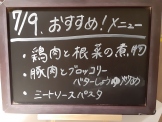 7/9. おすすめ!メニュー
・鶏肉と根菜の煮物
・豚肉とブロッコリー
バターしょうゆ炒め
・ミートソースパスタ